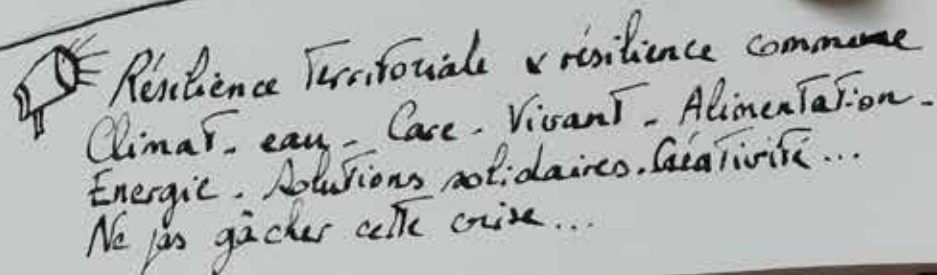 Résilience Territoriale & résilience commune
Climat - eau - Care - Vivant - Alimentation -
Energie - Solutions solidaires. Créativité...
Ne pas gâcher cette crise...